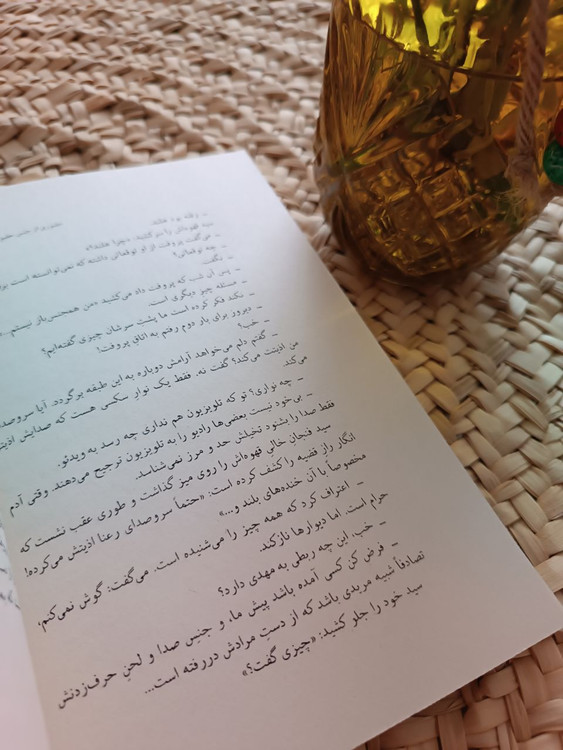 ـ رفته بود هلند.
سید قهوه‌اش را سر کشید. «چرا هلند؟»
ـ می‌گفت پروفت از او توقعاتی داشته که نمی‌توانسته است
ـ چه توقعاتی؟
ـ نگفت.
ـ پس آن شب که پروفت داد می‌کشید «من همجنس‌باز نیستم
ـ مسئله چیز دیگری است.
ـ نکند فکر کرده است ما پشت سرشان چیزی گفته‌ایم؟
ـ دیروز برای بار دوم رفتم به اتاق پروفت!
ـ خب؟
ـ گفتم دلم می‌خواهد آرامش دوباره به این طبقه برگردد. آیا سروصدای
من اذیتت می‌کند؟ گفت نه. فقط یک نوار سکسی هست که صدایش
می‌کند.
ـ چه نواری؟ تو که تلویزیون هم نداری چه رسد به ویدئو.
ـ بی‌خود نیست بعضی‌ها رادیو را به تلویزیون ترجیح می‌دهند. وقتی آدم
فقط صدا را بشنود تخیلش حد و مرز نمی‌شناسد.
سید فنجان خالی قهوه‌اش را روی میز گذاشت و طوری عقب نشست که
انگار راز قضیه را کشف کرده است: «حتماً سروصدای رعنا اذیتش می‌کرده!
مخصوصاً با آن خنده‌های بلند و...»
ـ اعتراف کرد که همه چیز را می‌شنیده است. می‌گفت: گوش نمی‌کنم،
حرام است. اما دیوارها نازکند.
ـ خب، این چه ربطی به مهدی دارد؟
ـ فرض کن کسی آمده باشد پیش ما، و جنس صدا و لحن حرف‌زدنش
تصادفاً شبیه مریدی باشد که از دست مرادش دررفته است...
سید خود را جلو کشید: «چیزی گفت؟»